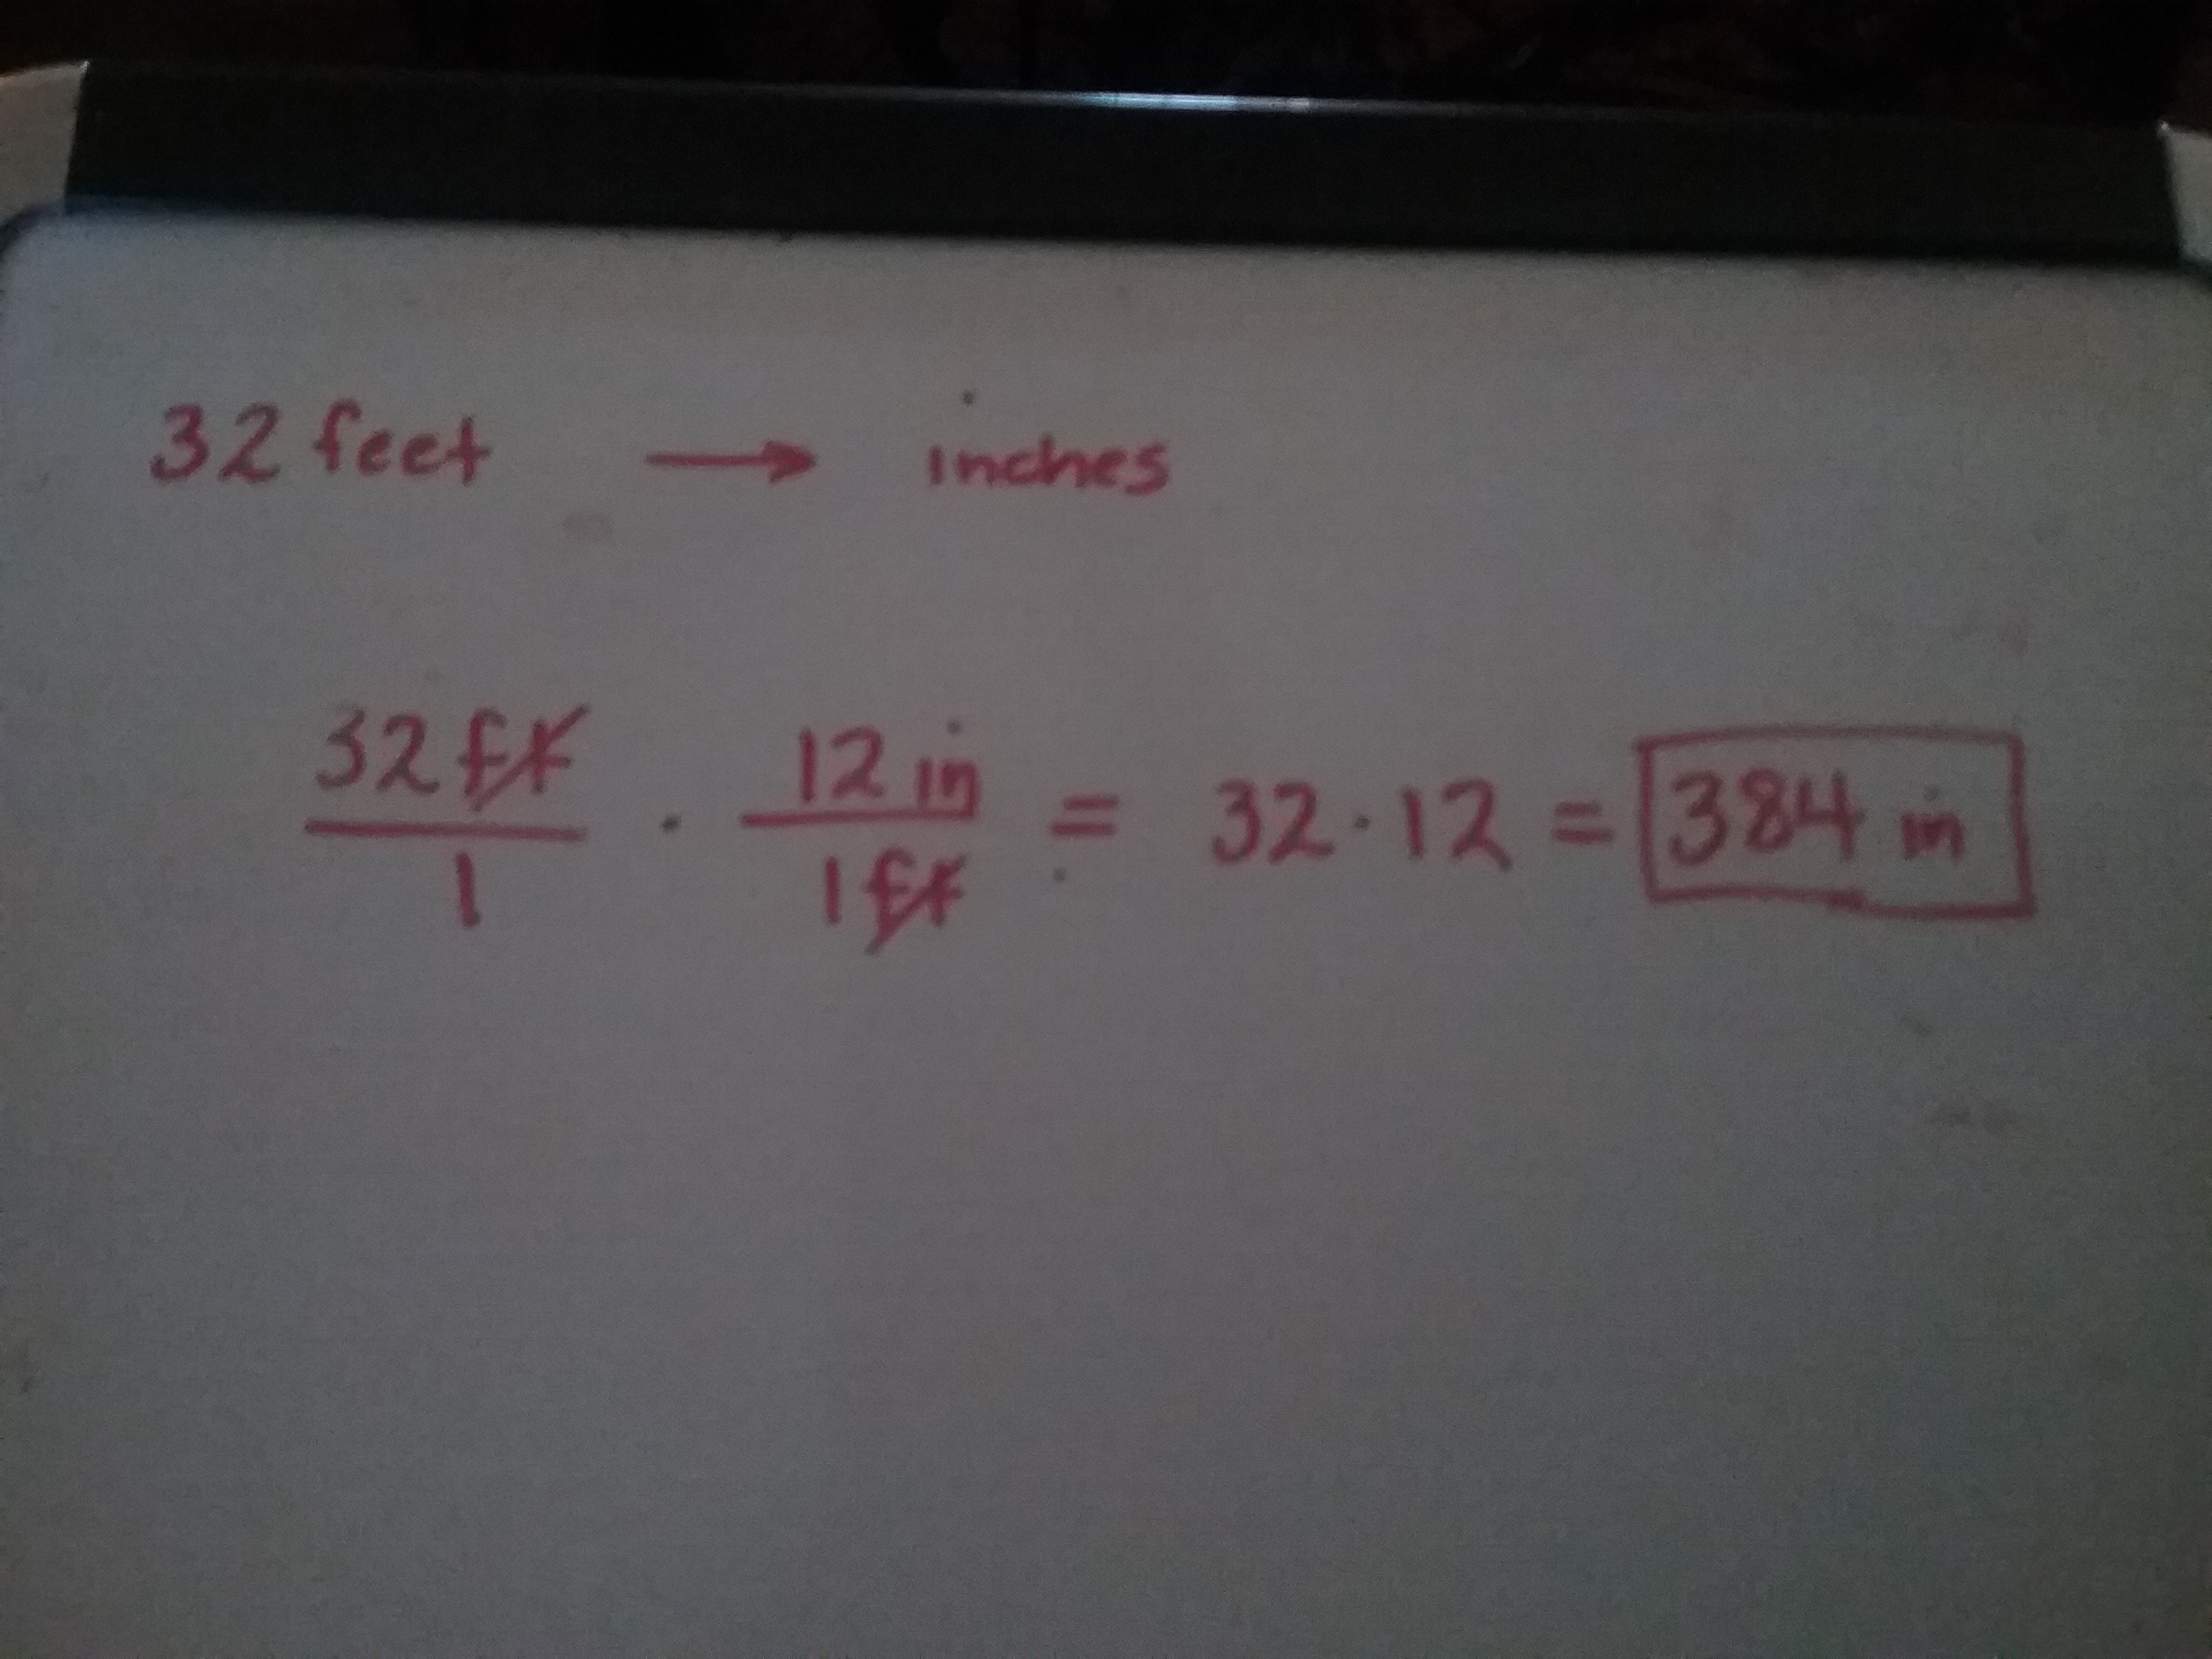 32 feet → inches
32 ft/1 · 12 in/1 ft = 32 · 12 = 384 in